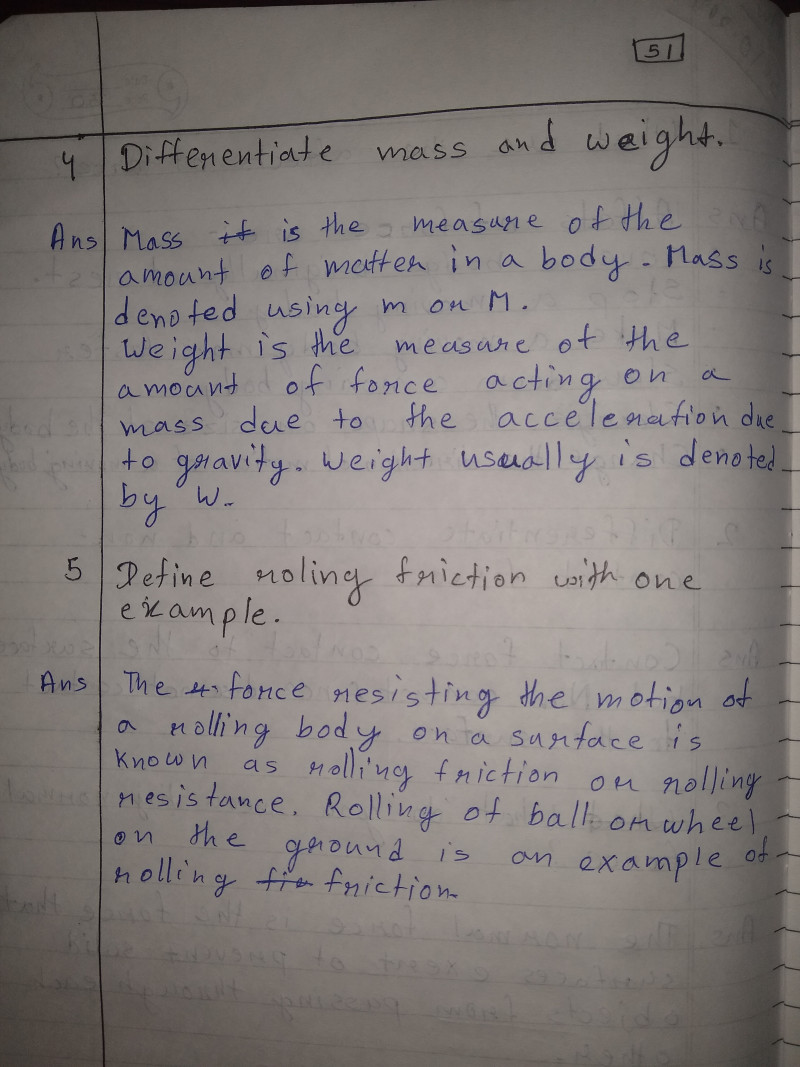 51
4 Differentiate mass and weight.
Ans Mass it is the measure of the
amount of matter in a body. Mass is
denoted using m or M.
Weight is the measure of the
amount of force acting on a
mass due to the acceleration due
to gravity. Weight usually is denoted
by W.
5 Define roling friction with one
example.
Ans The r force resisting the motion of
a rolling body on a surface is
known as rolling friction or rolling
resistance. Rolling of ball or wheel
on the ground is an example of
rolling fri friction.